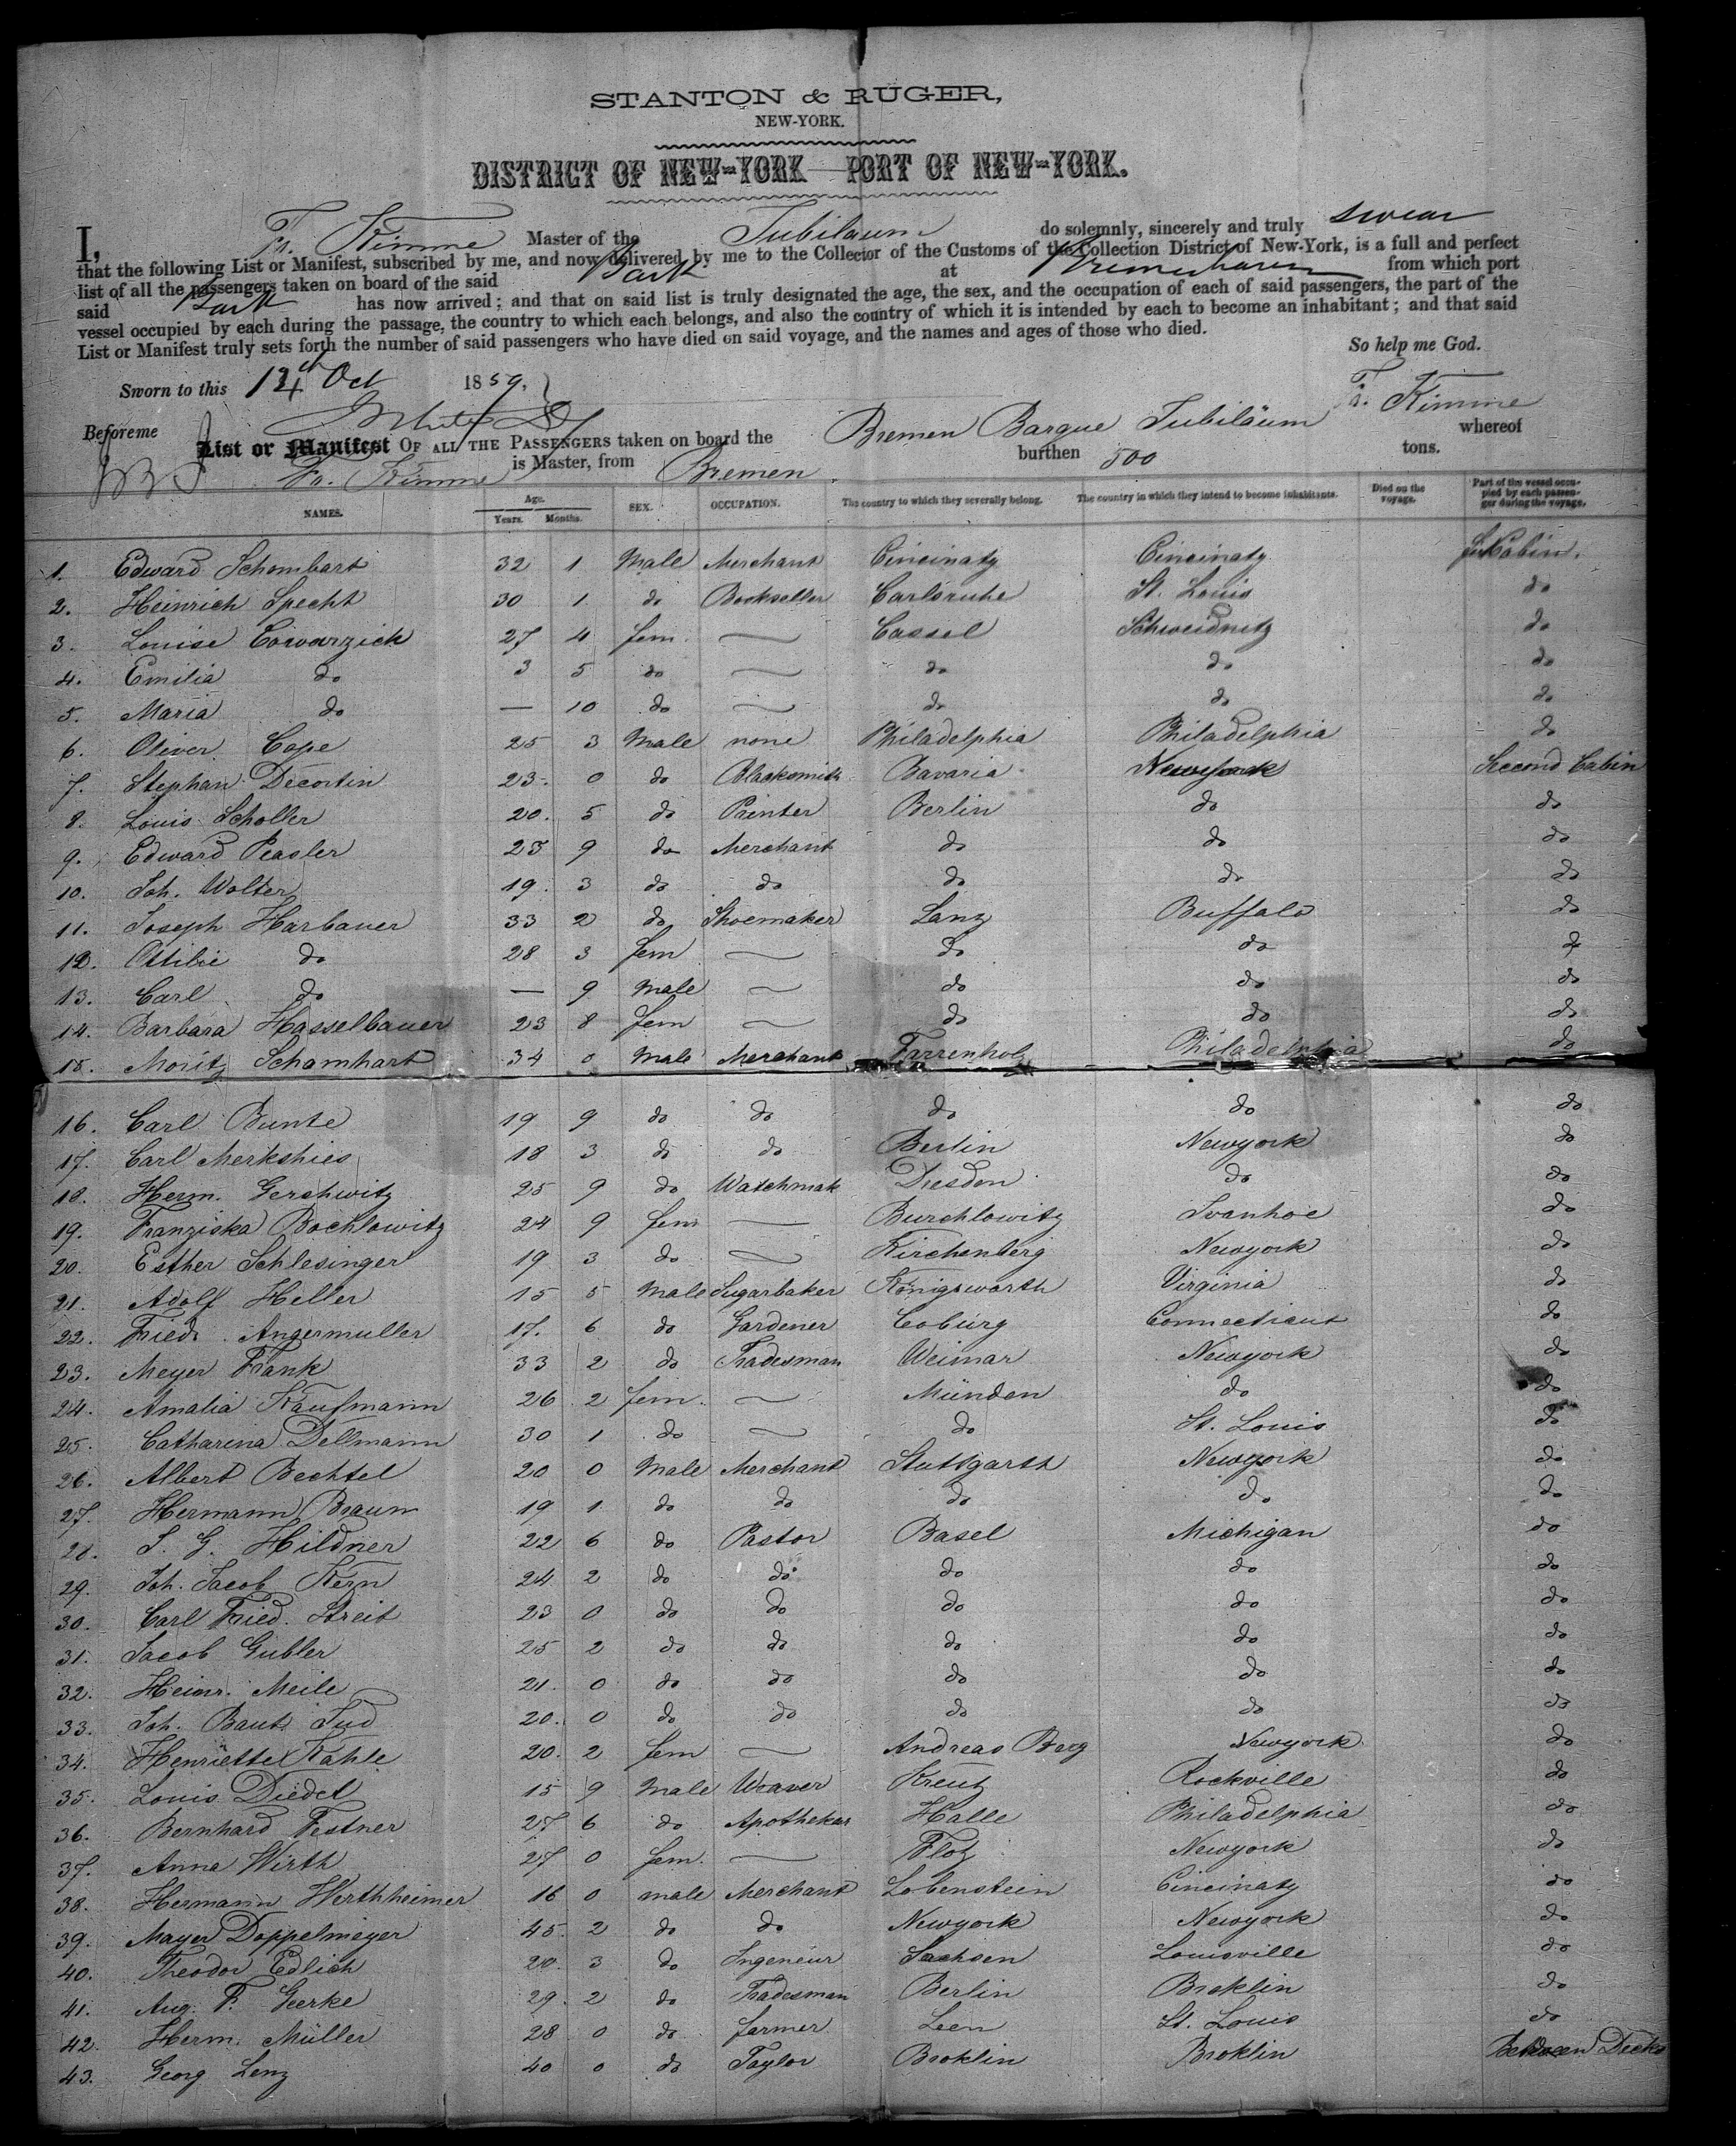 STANTON & RUGER,
NEW-YORK.
DISTRICT OF NEW-YORK—PORT OF NEW-YORK.
I, Fr. Kimme Master of the Jubilaum do solemnly, sincerely and truly swear
that the following List or Manifest, subscribed by me, and now delivered by me to the Collector of the Customs of the Collection District of New-York, is a full and perfect
list of all the passengers taken on board of the said Bark at Bremerhaven from which port
said Bark has now arrived; and that on said list is truly designated the age, the sex, and the occupation of each of said passengers, the part of the
vessel occupied by each during the passage, the country to which each belongs, and also the country of which it is intended by each to become an inhabitant; and that said
List or Manifest truly sets forth the number of said passengers who have died on said voyage, and the names and ages of those who died.
So help me God.
Sworn to this 14th Oct 1859,
Fr. Kimme
Before me
List or Manifest OF ALL THE PASSENGERS taken on board the Bremen Barque Jubiläum whereof
Fr. Kimme is Master, from Bremen burthen 500 tons.
NAMES. Age. Years. Months. SEX. OCCUPATION. The country to which they severally belong. The country in which they intend to become inhabitants. Died on the voyage. Part of the vessel occupied by each passenger during the voyage.
1. Edward Schombart 32 1 Male Merchant Cincinaty Cincinaty Cabin.
2. Heinrich Specht 30 1 do Bookseller Carlsruhe St. Louis do
3. Louise Cowarzick 27 4 fem. — Cassel Schweidnitz do
4. Emilia do 3 5 do — do do do
5. Maria do — 10 do — do do do
6. Oliver Cope 25 3 Male none Philadelphia Philadelphia do
7. Stephan Decortin 23. 0 do Blacksmith Bavaria Newyork Second Cabin
8. Louis Scholler 20. 5 do Painter Berlin do do
9. Edward Peasler 23 9 do Merchant do do do
10. Joh. Wolter 19. 3 do do do do do
11. Joseph Harbauer 33 2 do Shoemaker Lanz Buffalo do
12. Ottilie do 28 3 fem — do do do
13. Carl do — 9 Male — do do do
14. Barbara Hasselbauer 23 8 fem — do do do
15. Moritz Schamhart 34 0 Male Merchant Farrenholz Philadelphia do
16. Carl Bunte 19 9 do do do do do
17. Carl Merkshies 18 3 do do Berlin Newyork do
18. Herm. Gerchwitz 25 9 do Watchmak Dresden do do
19. Franziska Bochlowitz 24 9 fem — Burchlowitz Ivanhoe do
20. Esther Schlesinger 19 3 do — Kirchenberg Newyork do
21. Adolf Heller 15 5 Male Sugarbaker Königswarth Virginia do
22. Friedr. Angermuller 17. 6 do Gardener Coburg Connecticut do
23. Meyer Frank 33 2 do Tradesman Weimar Newyork do
24. Amalia Kaufmann 26 2 fem. — Münden do do
25. Catharina Dellmann 30 1 do — do St. Louis do
26. Albert Bechtel 20 0 Male Merchant Stuttgarth Newyork do
27. Hermann Braun 19 1 do do do do do
28. J. G. Hildner 22 6 do Pastor Basel Michigan do
29. Joh. Jacob Kern 24 2 do do do do do
30. Carl Fried. Streit 23 0 do do do do do
31. Jacob Gubler 25 2 do do do do do
32. Heinr. Meile 21. 0 do do do do do
33. Joh. Baut. Jud 20. 0 do do do do do
34. Henriette Kahle 20. 2 fem — Andreas Berg Newyork do
35. Louis Diedel 15 9 Male Weaver Kreutz Rockville do
36. Bernhard Festner 27 6 do Apotheker Halle Philadelphia do
37. Anna Wirth 27 0 fem. — Flotz Newyork do
38. Hermann Werthheimer 16 0 male Merchant Lobenstein Cincinaty do
39. Mayer Doppelmeyer 45. 2 do do Newyork Newyork do
40. Theodor Edlich 20. 3 do Ingenieur Sachsen Louisville do
41. Aug. F. Geerke 29. 2 do Tradesman Berlin Broklin do
42. Herm. Müller 28 0 do farmer Leen St. Louis do
43. Georg Lenz 40 0 do Taylor Broklin Broklin Between Decks